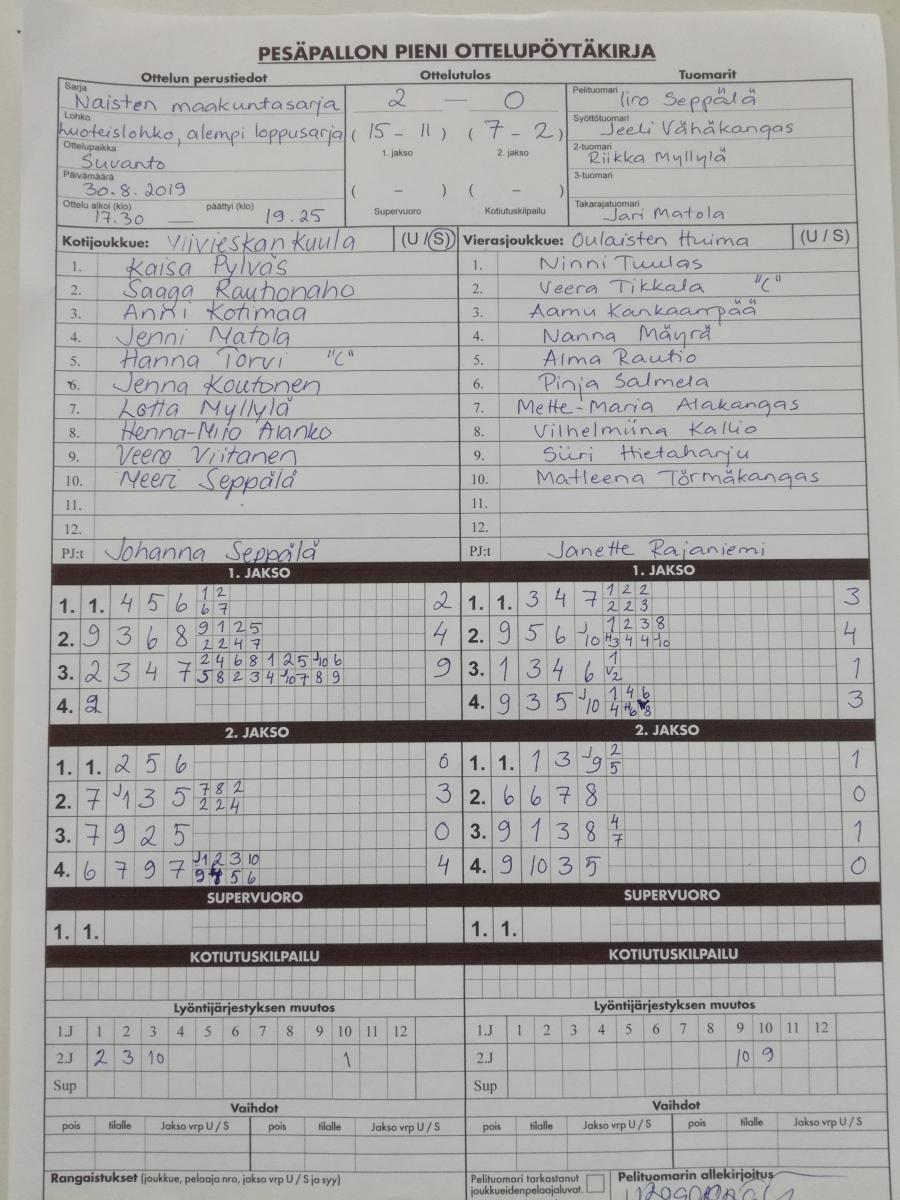 PESÄPALLON PIENI OTTELUPÖYTÄKIRJA
Ottelun perustiedot Ottelutulos Tuomarit
Sarja Naisten maakuntasarja 2 — 0 Pelituomari Iiro Seppälä
Lohko huoteislohko, alempi loppusarja (15 - 11) (7 - 2) Syöttötuomari Jeeli Vähäkangas
1. jakso 2. jakso
Ottelupaikka Suvanto 2-tuomari Riikka Myllylä
Päivämäärä 30.8.2019 ( - ) ( - ) 3-tuomari
Ottelu alkoi (klo) 17.30 — päättyi (klo) 19.25 Supervuoro Kotiutuskilpailu Takarajatuomari Jari Matola
Kotijoukkue: Ylivieskan Kuula (U / S) Vierasjoukkue: Oulaisten Huima (U / S)
1. Kaisa Pylväs 1. Ninni Tuulas
2. Saaga Rautionaho 2. Veera Tikkala "C"
3. Anni Kotimaa 3. Aamu Kankaanpää
4. Jenni Matola 4. Nanna Mäyrä
5. Hanna Torvi "C" 5. Alma Rautio
6. Jenna Koutonen 6. Pinja Salmela
7. Lotta Myllylä 7. Mette-Maria Alakangas
8. Henna-Miia Alanko 8. Vilhelmiina Kallio
9. Veera Viitanen 9. Siiri Hietaharju
10. Meeri Seppälä 10. Matleena Törmäkangas
11. 11.
12. 12.
PJ:t Johanna Seppälä PJ:t Janette Rajaniemi
1. JAKSO 1. JAKSO
1. 1. 4 5 6 1 2 2 1. 1. 3 4 7 1 2 2 3
6 7 2 2 3
2. 9 3 6 8 9 1 2 5 4 2. 9 5 6 J10 1 2 3 8 4
2 2 4 7 H3 4 4 J10
3. 2 3 4 7 2 4 6 8 1 2 5 J10 6 9 3. 1 3 4 6 1 1
5 8 2 3 4 J10 7 8 9 V2
4. 2 4. 9 3 5 J10 1 4 6 3
4 H6 8
2. JAKSO 2. JAKSO
1. 1. 2 5 6 0 1. 1. 1 3 J9 2 1
5
2. 7 J1 3 5 7 8 2 3 2. 6 6 7 8 0
2 2 4
3. 7 9 2 5 0 3. 9 1 3 8 4 1
7
4. 6 7 9 7 J1 2 3 10 4 4. 9 10 3 5 0
9 5 6
SUPERVUORO SUPERVUORO
1. 1. 1. 1.
KOTIUTUSKILPAILU KOTIUTUSKILPAILU
Lyöntijärjestyksen muutos Lyöntijärjestyksen muutos
1.J 1 2 3 4 5 6 7 8 9 10 11 12 1.J 1 2 3 4 5 6 7 8 9 10 11 12
2.J 2 3 10 1 2.J 10 9
Sup Sup
Vaihdot Vaihdot
pois tilalle Jakso vrp U / S pois tilalle Jakso vrp U / S pois tilalle Jakso vrp U / S pois tilalle Jakso vrp U / S
Rangaistukset (joukkue, pelaaja nro, jakso vrp U / S ja syy) Pelituomari tarkastanut Pelituomarin allekirjoitus
joukkueidenpelaajaluvat.